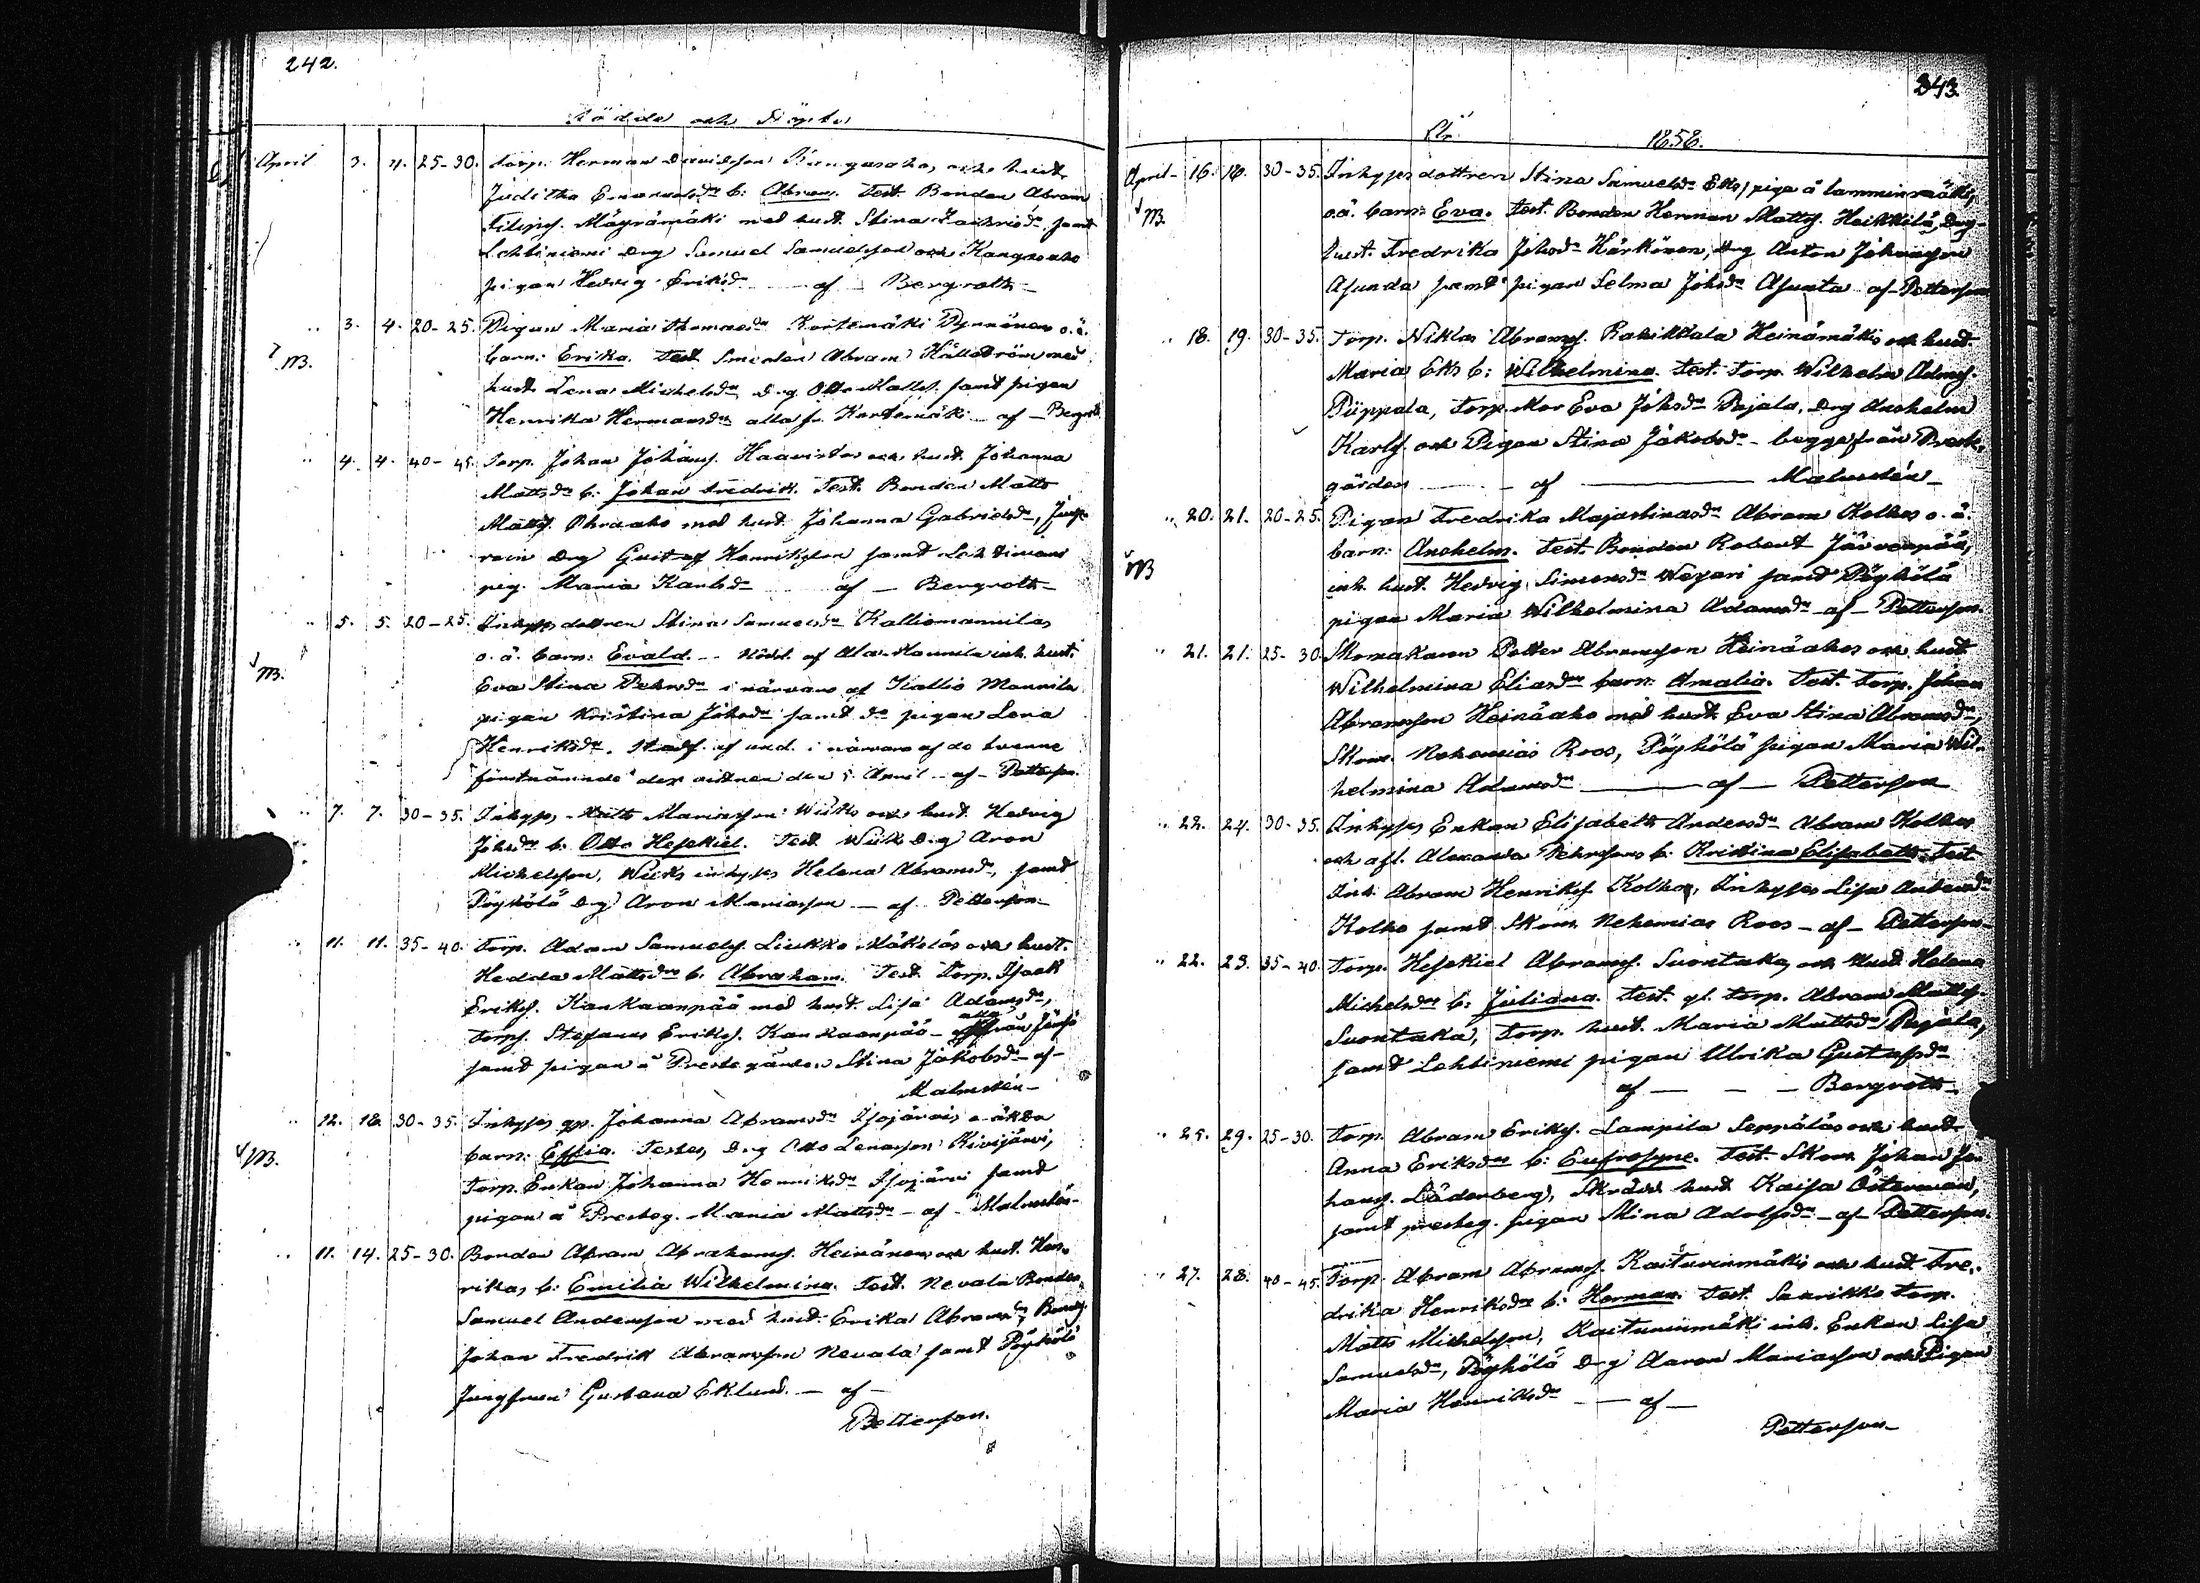 242.
Födde och Döpte
April 3. 4. 25-30. Torp. Herman Davidsson och hust.
Juditha b: Abram. Test. Bonden Abram
Filipss. Mäyrämäki med hust. Stina samt
Lehtiniemi drg Samuel Samuelsson och Kangasaho
pigan Hedvig Eriksdr af Bergroth
" 3. 4. 20-25. Pigan Maria Thomasdr Kortemäki o.ä.
barn: Erika. Test. Abram Hällström med
hust. Lena Michelsdr, drg Otto Mattss. samt pigan
Henrika Hermansdr alla fr. Kortemäki af
" 4. 4. 40-45. Torp. Johan Johanss. Haavisto och hust. Johanna
Mattsdr b: Johan Fredrik. Test. Bonden Matts
Mattss. Ohraaho med hust. Johanna Gabrielsdr,
drg Gustaf Henriksson samt Lehtimäen
pig. Maria Karlsdr af Bergroth
" 5. 5. 20-25. Inhyses dottren Stina Samuelsdr Kalliomannilas
o.ä. barn: Evald. Nöddöpt af Ala-Mannila inh. hust.
Eva Stina i närvaro af Kallio Mannila
pigan Kristina Johsdr samt do pigan Lena
Henriksdr. i närvaro af do tvenne
förstnämnde den 5 April af Petterson.
" 7. 7. 30-35. Inhyses Matts Mariasson Wiiks och hust. Hedvig
Johsdr b: Otto Hesekiel. Test. Wiik drg Aron
Michelsson, Wiiks inhyses Helena Abramsdr, samt
Pöyhölä drg Aron Mariasson af Petterson
" 11. 11. 35-40. Torp. Adam Samuelss. Liukko Mäkeläs och hust.
Hedda Mattsdr b: Abraham. Test. Torp. Isaak
Erikss. Kankaanpää med hust. Lisa Adamsdr,
Torps. Stefanus Erikss. Kankaanpää alla från
samt pigan å Prestegården Stina Jakobsdr af
Malmstén
" 12. 18. 30-35. Inhyses qp. Johanna Abramsdr Isojärvis o-äkta
barn: Effia. Testes, drg Otto Lenasson Kivijärvi,
Torp. Enkan Johanna Henriksdr Isojärvi samt
pigan å Presteg. Maria Mattsdr af Malmstén
" 11. 14. 25-30. Bonden Abram Abrahamss. Heinänen och hust. Hen-
rikas b: Emilia Wilhelmina. Test. Nevala Bonden
Samuel Andersson med hust. Erika Abramsdr,
Johan Fredrik Abramsson Nevala samt Pöyhölä
Jungfrun Gustava Eklund af
Petterson.
243.
År 1858.
April 16. 18. 30-35. Inhyses dottren Stina Samuelsdr piga å Lamminmäki,
o.ä. barn: Eva. Test. Bonden Herman Mattss. Heikkilä, drg
hust. Fredrika Johsdr Härkönen, drg Anton Johansson
Asunda samt pigan Selma Johsdr Asunta af Petterson
" 18. 19. 30-35. Torp. Niklas Abramss. Heinämäkis och hust.
Maria b: Wilhelmina. Test. Torp. Wilhelm
Piippola, Torp. Mor Eva Johsdr Pajala, drg Anshelm
Karlss. och Pigan Stina Jakobsdr begge från Prest-
gården af Malmstén
" 20. 21. 20-25. Pigan Fredrika Majastinasdr Abram Kolkos o.ä.
barn: Anshelm. Test. Bonden Robert Järvenpää,
inh. hust. Hedvig Simonsdr samt Pöyhölä
pigan Maria Wilhelmina Adamsdr af Petterson
" 21. 21. 25-30. Skomakaren Petter Abramsson Heinäahos och hust.
Wilhelmina Eliasdr barn: Amalia. Test. Torp. Johan
Abramsson Heinäaho med hust. Eva Stina Abramsdr,
Skom. Nehemias Roos, Pöyhölä pigan Maria Wil-
helmina Adamsdr af Petterson
" 22. 24. 30-35. Inhyses Enkan Elisabeth Andersdr Abram Kolkos
och afl. Alexander b: Kristina Elisabeth. Test.
Inh. Abram Henrikss. Kolko, Inhyses Lisa Andersdr
Kolko samt Skom. Nehemias Roos af Petterson
" 22. 23. 35-40. Torp. Hesekiel Abramss. Suontaka, och Hust. Helena
Michelsdr b: Juliana. Test. gl. Torp. Abram Mattss.
Suontaka, Torp. hust. Maria Mattsdr Pajala,
samt Lehtiniemi pigan Ulrika Gustafsdr
af Bergroth
" 25. 29. 25-30. Torp. Abram Erikss. Lampila Seppäläs och hust.
Anna Eriksdr b: Eufrosyne. Test. Skom. Johan Jo-
hanss. Söderberg, hust. Kaisa Österman,
samt presteg. pigan Stina Adolfsdr af Petterson.
" 27. 28. 40-45. Torp. Abram Abramss. Kaiturinmäkis och hust. Fre-
drika Henriksdr b: Herman. Test. Saarikko Torp.
Matts Michelsson, Kaiturinmäki inh. Enkan Lisa
Samuelsdr, Pöyhölä drg Aaron Mariasson och Pigan
Maria Henriksdr af
Petterson